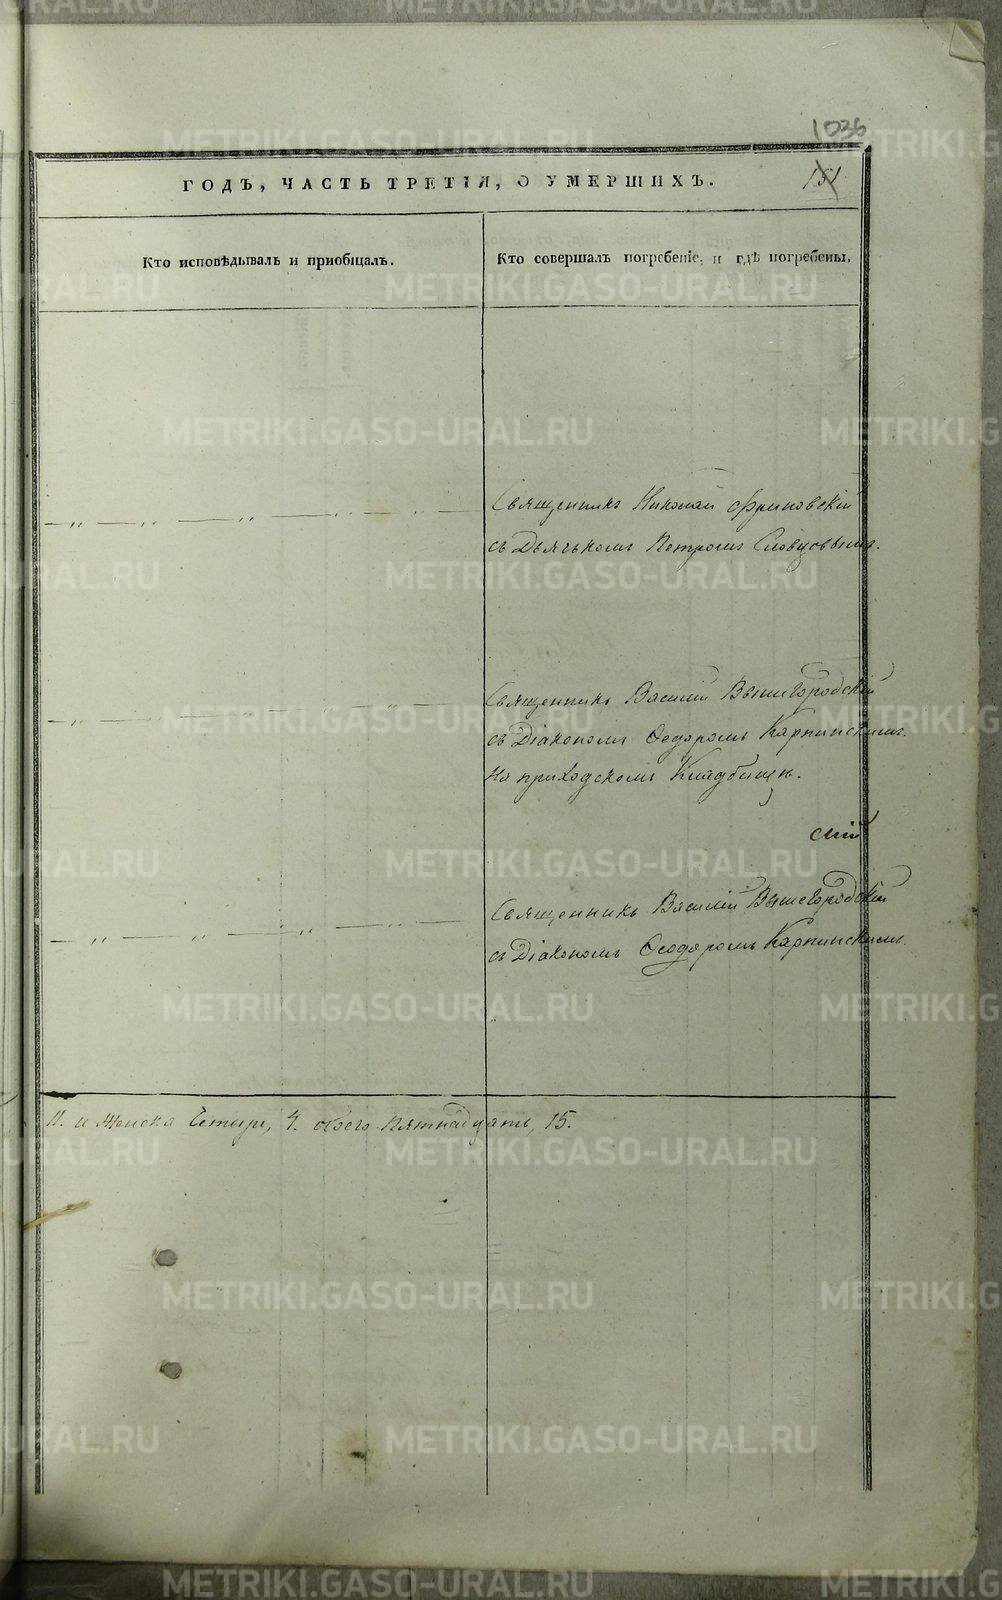 1036
ГОДЪ, ЧАСТЬ ТРЕТІЯ, О УМЕРШИХЪ.
151
Кто исповѣдывалъ и приобщалъ.
Кто совершалъ погребеніе, и гдѣ погребены.
— „ — „ — „ — „ —
Священникъ Николай Фриновскій
съ Дьячкомъ Петромъ Словцовымъ.
— „ — „ — „ — „ —
Священникъ Василій Вышегородскій
съ Діакономъ Ѳедоромъ Карпинскимъ.
На приходскомъ Кладбищѣ.
— „ — „ — „ —
Священникъ Василій Вышегородскій
съ Діакономъ Ѳеодоромъ Карпинскимъ.
11. и Женска Четыре, 4. обоего Пятнадцать, 15.
METRIKI.GASO-URAL.RU